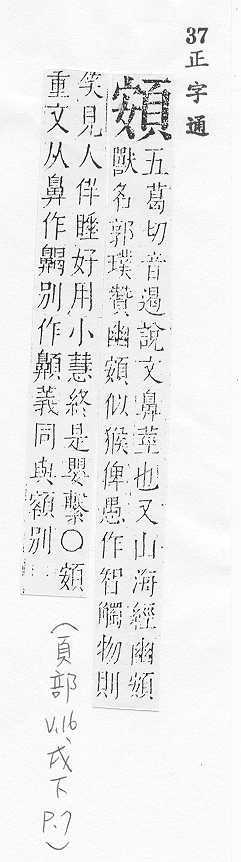 37 正字通
頞
五葛切音遏說文鼻莖也又山海經幽頞
獸名郭璞贊幽頞似猴俾愚作智觸物則
笑見人佯睡好用小慧終是嬰繫〇頞
重文从鼻作齃別作義同與額別
(頁部 V.16、戌下 P.7)